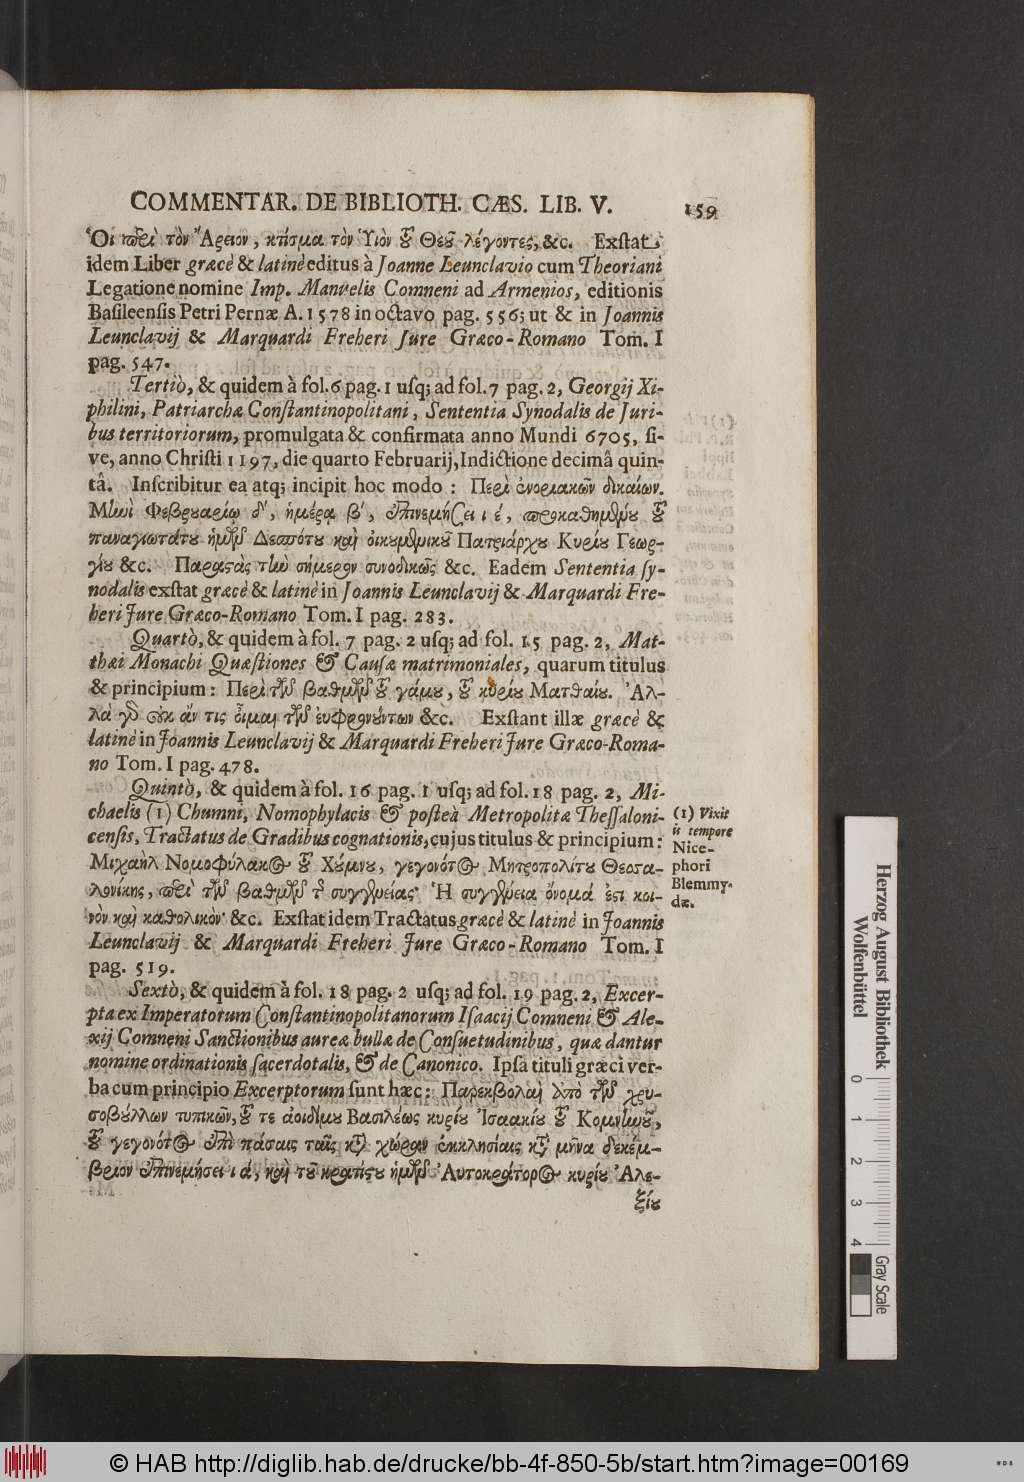 COMMENTAR. DE BIBLIOTH. CÆS. LIB. V. 159
Ὁι περὶ τὸν Ἄρειον, κτίσμα τὸν Ὑιὸν τοῦ Θεοῦ λέγοντες, &c. Exſtat
idem Liber græcè & latinè editus à Joanne Leunclavio cum Theoriani
Legatione nomine Imp. Manuelis Comneni ad Armenios, editionis
Baſileenſis Petri Pernæ A. 1578 in octavo pag. 556; ut & in Joannis
Leunclavij & Marquardi Freheri Jure Græco-Romano Tom. I
pag. 547.
Tertiò, & quidem à fol. 6 pag. 1 uſq; ad fol. 7 pag. 2, Georgij Xi-
philini, Patriarchæ Conſtantinopolitani, Sententia Synodalis de Juri-
bus territoriorum, promulgata & confirmata anno Mundi 6705, ſi-
ve, anno Chriſti 1197, die quarto Februarij, Indictione decimâ quin-
tâ. Inſcribitur ea atq; incipit hoc modo: Περὶ ἐνοριακῶν δικαίων.
Μηνὶ Φεβρουαρίῳ δ', ἡμέρᾳ β', ἐπινεμήσει ιέ, προκαθημένου τοῦ
παναγιωτάτου ἡμῶν Δεσπότου καὶ ὀικουμενικοῦ Πατριάρχου Κυρίου Γεωρ-
γίου &c. Παραστὰς τὴν σήμερον συνοδικῶς &c. Eadem Sententia ſy-
nodalis exſtat græcè & latinè in Joannis Leunclavij & Marquardi Fre-
heri Jure Græco-Romano Tom. I pag. 283.
Quartò, & quidem à fol. 7 pag. 2 uſq; ad fol. 15 pag. 2, Mat-
thæi Monachi Quæſtiones & Cauſæ matrimoniales, quarum titulus
& principium: Περὶ τῶν βαθμῶν τοῦ γάμου, τοῦ κυρίου Ματθαίου. Ἀλ-
λὰ γὸ οὐκ ἄν τις ὄιμαι τῶν ἐυφρονούντων &c. Exſtant illæ græcè &
latinè in Joannis Leunclavij & Marquardi Freheri Jure Græco-Roma-
no Tom. I pag. 478.
Quintò, & quidem à fol. 16 pag. 1 uſq; ad fol. 18 pag. 2, Mi-
chaelis (1) Chumni, Nomophylacis & poſteà Metropolitæ Theſſaloni-
cenſis, Tractatus de Gradibus cognationis, cujus titulus & principium:
Μιχαὴλ Νομοφύλακος τοῦ Χούμνου, γεγονότος Μητροπολίτου Θεσσα-
λονίκης, περὶ τῶν βαθμῶν τῆς συγγενείας· Ἡ συγγένεια ὄνομά ἐστι κοι-
νὸν καὶ καθολικόν· &c. Exſtat idem Tractatus græcè & latinè in Joannis
Leunclavij & Marquardi Freheri Jure Græco-Romano Tom. I
pag. 519.
Sextò, & quidem à fol. 18 pag. 2 uſq; ad fol. 19 pag. 2, Excer-
pta ex Imperatorum Conſtantinopolitanorum Iſaacij Comneni & Ale-
xij Comneni Sanctionibus aureæ bullæ de Conſuetudinibus, quæ dantur
nomine ordinationis ſacerdotalis, & de Canonico. Ipſa tituli græci ver-
ba cum principio Excerptorum ſunt hæc: Παρεκβολαὶ ἀπὸ τῶν χρυ-
σοβούλλων τυπικῶν, τοῦ τε ἀοιδίμου Βασιλέως κυρίου Ἰσαακίου τοῦ Κομνηνοῦ,
τοῦ γεγονότος ἐπὶ πάσαις ταῖς κατὰ χώραν ἐκκλησίαις κατὰ μῆνα δεκέμ-
βριον ἐπινεμήσει ιά, καὶ τοῦ κρατίστου ἡμῶν Ἀυτοκράτορος κυρίου Ἀλε-
ξίου
(1) Vixit
is tempore
Nice-
phori
Blemmy-
dæ.
Herzog August Bibliothek
Wolfenbüttel
0 1 2 3 4
Gray Scale
© HAB http://diglib.hab.de/drucke/bb-4f-850-5b/start.htm?image=00169
WDB